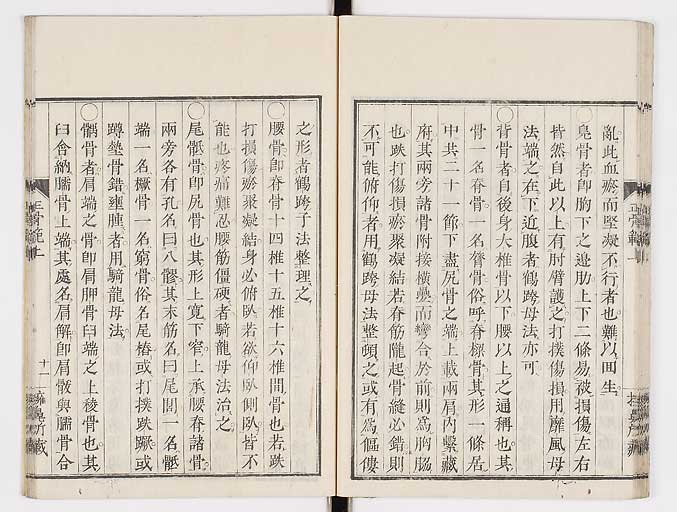 亂此血瘀而堅凝不行者也難以回生
〇鳧骨者卽胸下之邊肋上下二條易被損傷左右
皆然自此以上有肘臂護之打撲傷損用靡風母
法端之在下近腹者鶴跨母法亦可
〇背骨者自後身大椎骨以下腰以上之通稱也其
骨一名脊骨一名膂骨俗呼脊梁骨其形一條居
中共二十一節下盡尻骨之端上載兩肩內繫藏
府其兩旁諸骨附接橫疊而彎合於前則爲胸脇
也跌打傷損瘀聚凝結若脊筋隴起骨縫必錯則
不可能俯仰者用鶴跨母法整頓之或有爲傴僂
正骨範上
之形者鶴跨子法整理之
〇腰骨卽脊骨十四椎十五椎十六椎間骨也若跌
打損傷瘀聚凝結身必俯臥若欲仰臥側臥皆不
能也疼痛難忍腰筋僵硬者騎龍母法治之
〇尾骶骨卽尻骨也其形上寬下窄上承腰脊諸骨
兩旁各有孔名曰八髎其末筋名曰尾閭一名骶
端一名橛骨一名窮骨俗名尾樁或打撲跌蹶或
蹲墊骨錯壅腫者用騎龍母法
〇髃骨者肩端之骨卽肩胛骨臼端之上稜骨也其
臼含納臑骨上端其處名肩解卽肩骸與臑骨合
正骨範上
十一